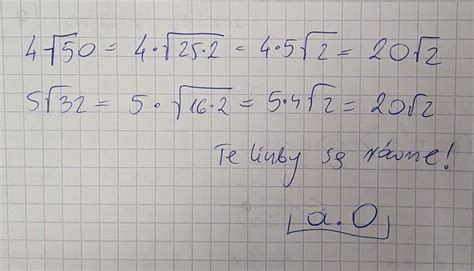 4√50 = 4·√25·2 = 4·5√2 = 20√2
5√32 = 5·√16·2 = 5·4√2 = 20√2
Te liczby są równe!
a.0